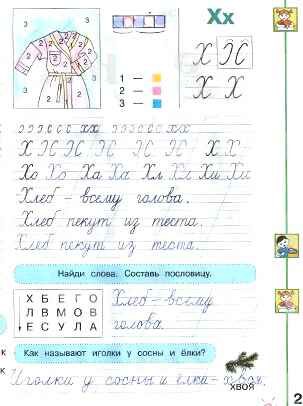 Хх
3 2 3
2 2 2 2
1 —
2 —
3 —
Х Ж
Х Х
Х Х
Хо Хо Ха Ха Хл Хл Хи Хи
Хлеб – всему голова.
Хлеб пекут из теста.
Хлеб пекут из теста.
Найди слова. Составь пословицу.
Х Б Е Г О
Л В М О В
Е С У Л А
Хлеб – всему
голова.
Как называют иголки у сосны и ёлки?
ХВОЯ
Иголки у сосны и ёлки – хвоя.
2